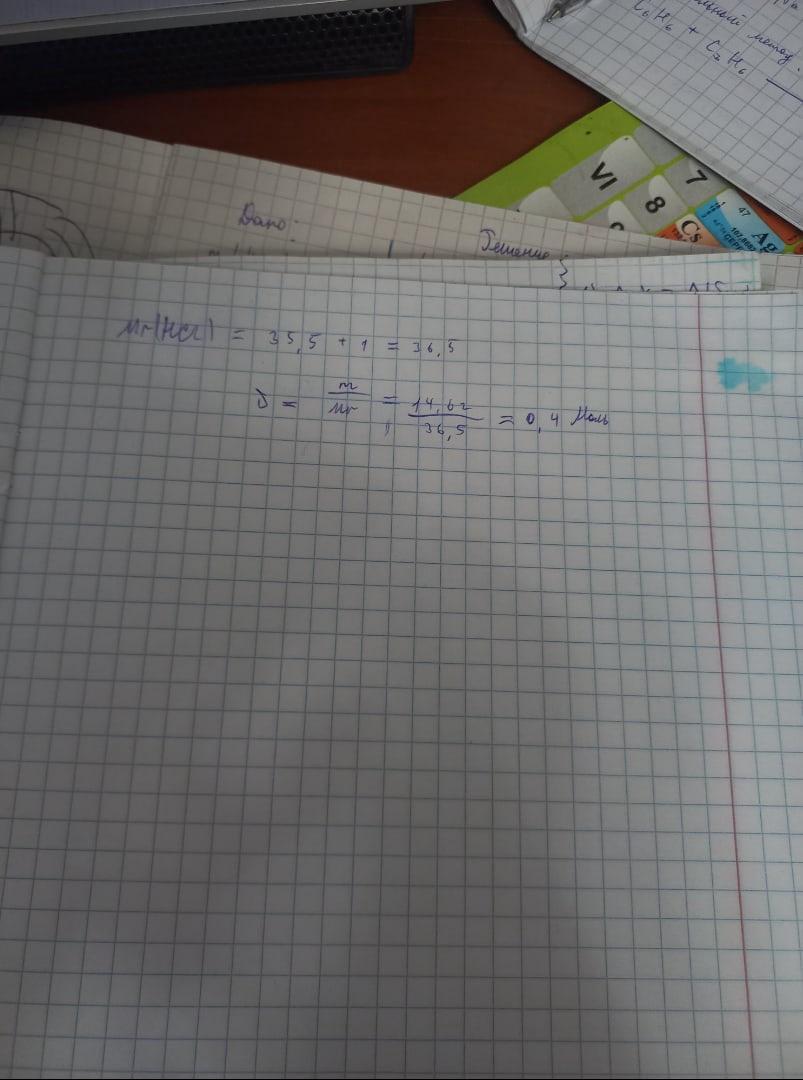 C₆H₆ + C₂H₆
VI
8
7
47
Ag
Cs
Дано:
Решение
Mr(HCl) = 35,5 + 1 = 36,5
ν = m/Mr = 14,6г/36,5 = 0,4 моль